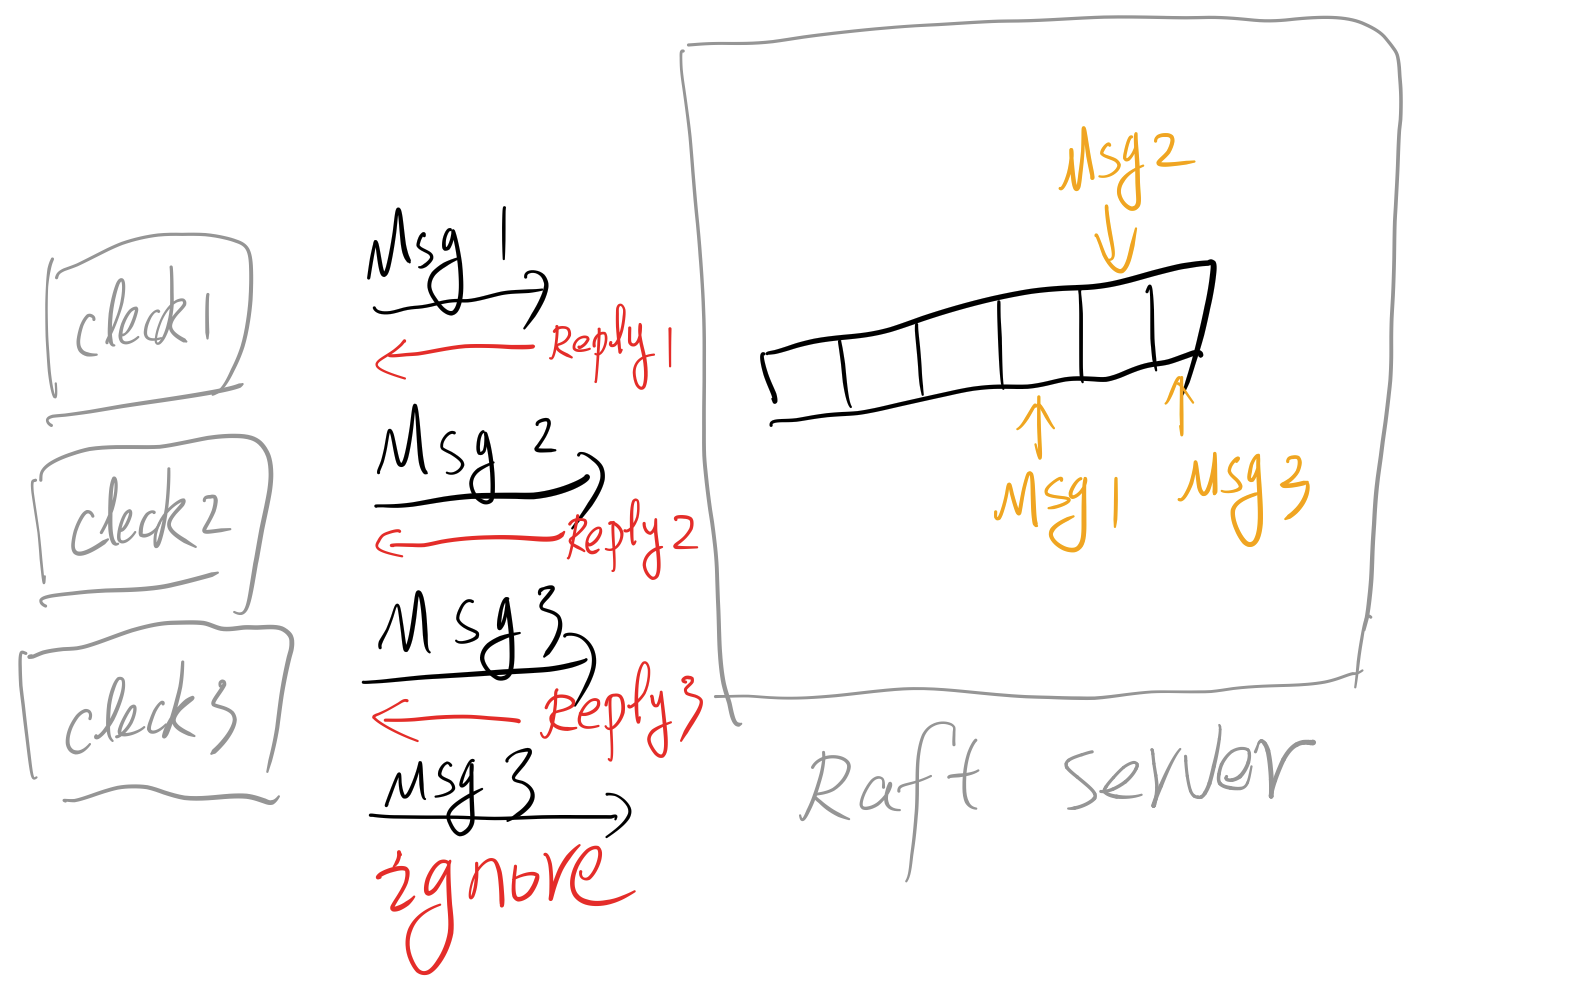 cleck1
cleck2
cleck3
Msg 1
Reply 1
Msg 2
Reply 2
Msg 3
Reply 3
Msg 3
ignore
Msg 2
Msg 1
Msg 3
Raft server